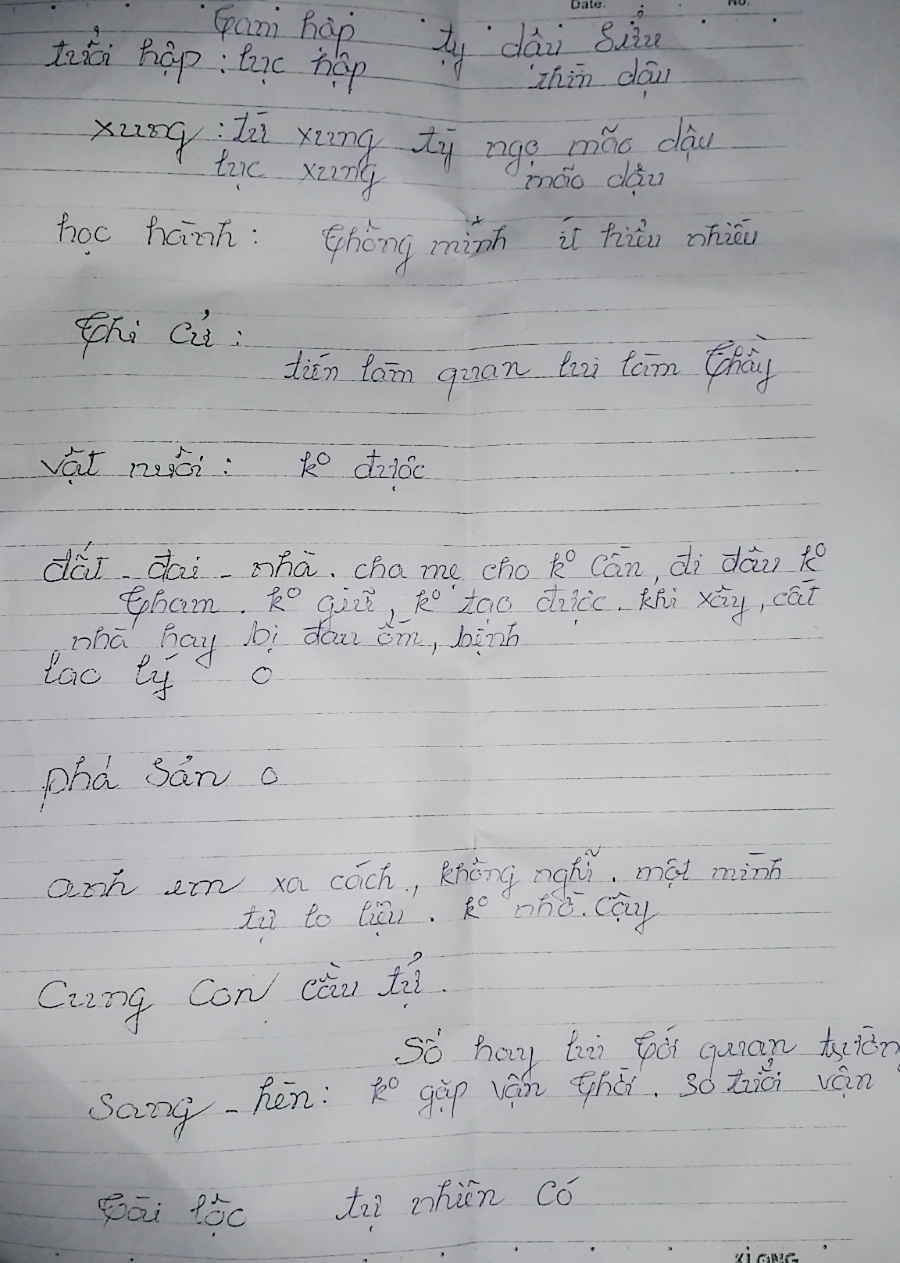 Date: No.
Tam hạp tỵ dậu Sửu
tuổi hạp : lục hạp thìn dậu
xung : tứ xung tý ngọ mão dậu
lục xung mão dậu
học hành : thông minh ít hiểu nhiều
Thi cử :
tiến làm quan lui làm thầy
vật nuôi : k° được
đất - đai - nhà . cha mẹ cho k° cần, đi đâu k°
tham . k° giữ, k° tạo được . khi xây, cất
nhà hay bị đau ốm, bịnh
lao lý o
phá sản o
anh em xa cách, không nghĩ . một mình
tự lo liệu . k° nhờ . cậy
Cung Con cầu tự .
Số hay lui tới quan trườn
Sang - hèn : k° gặp vận thời . số tuổi vận
tài lộc tự nhiên có